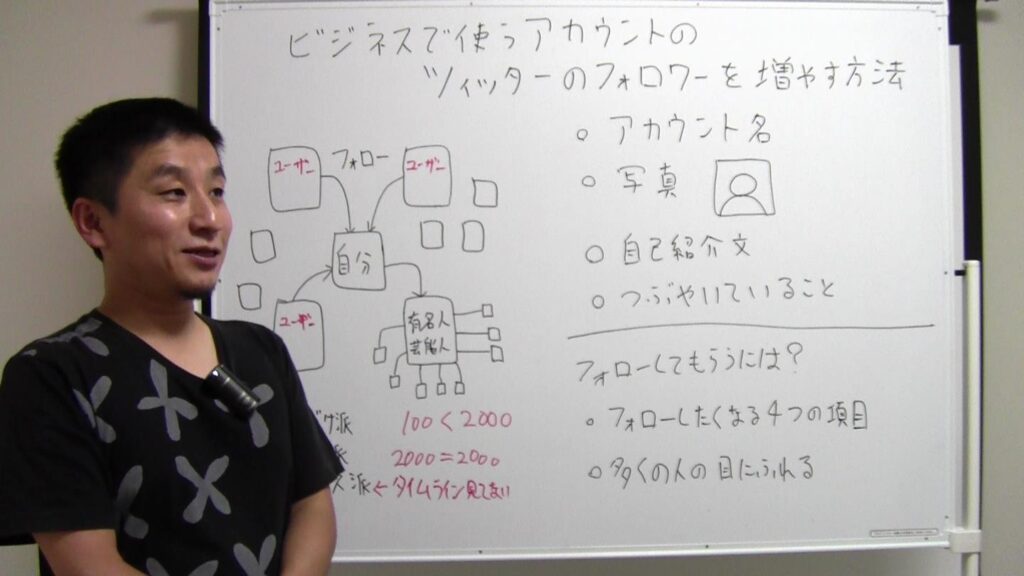 ビジネスで使うアカウントの
ツィッターのフォロワーを増やす方法
ユーザー
フォロー
ユーザー
自分
ユーザー
有名人
芸能人
派 100<2000
派 2000=2000
派←タイムライン見てない
○ アカウント名
○ 写真
○ 自己紹介文
○ つぶやいていること
フォローしてもらうには?
○ フォローしたくなる4つの項目
○ 多くの人の目にふれる